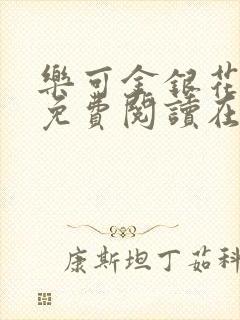 樂可金銀花
免費閱讀在
康斯坦丁茹科